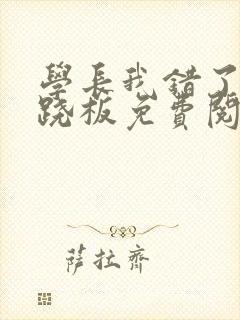 學長我錯了
跷板免費閱
薩拉齊